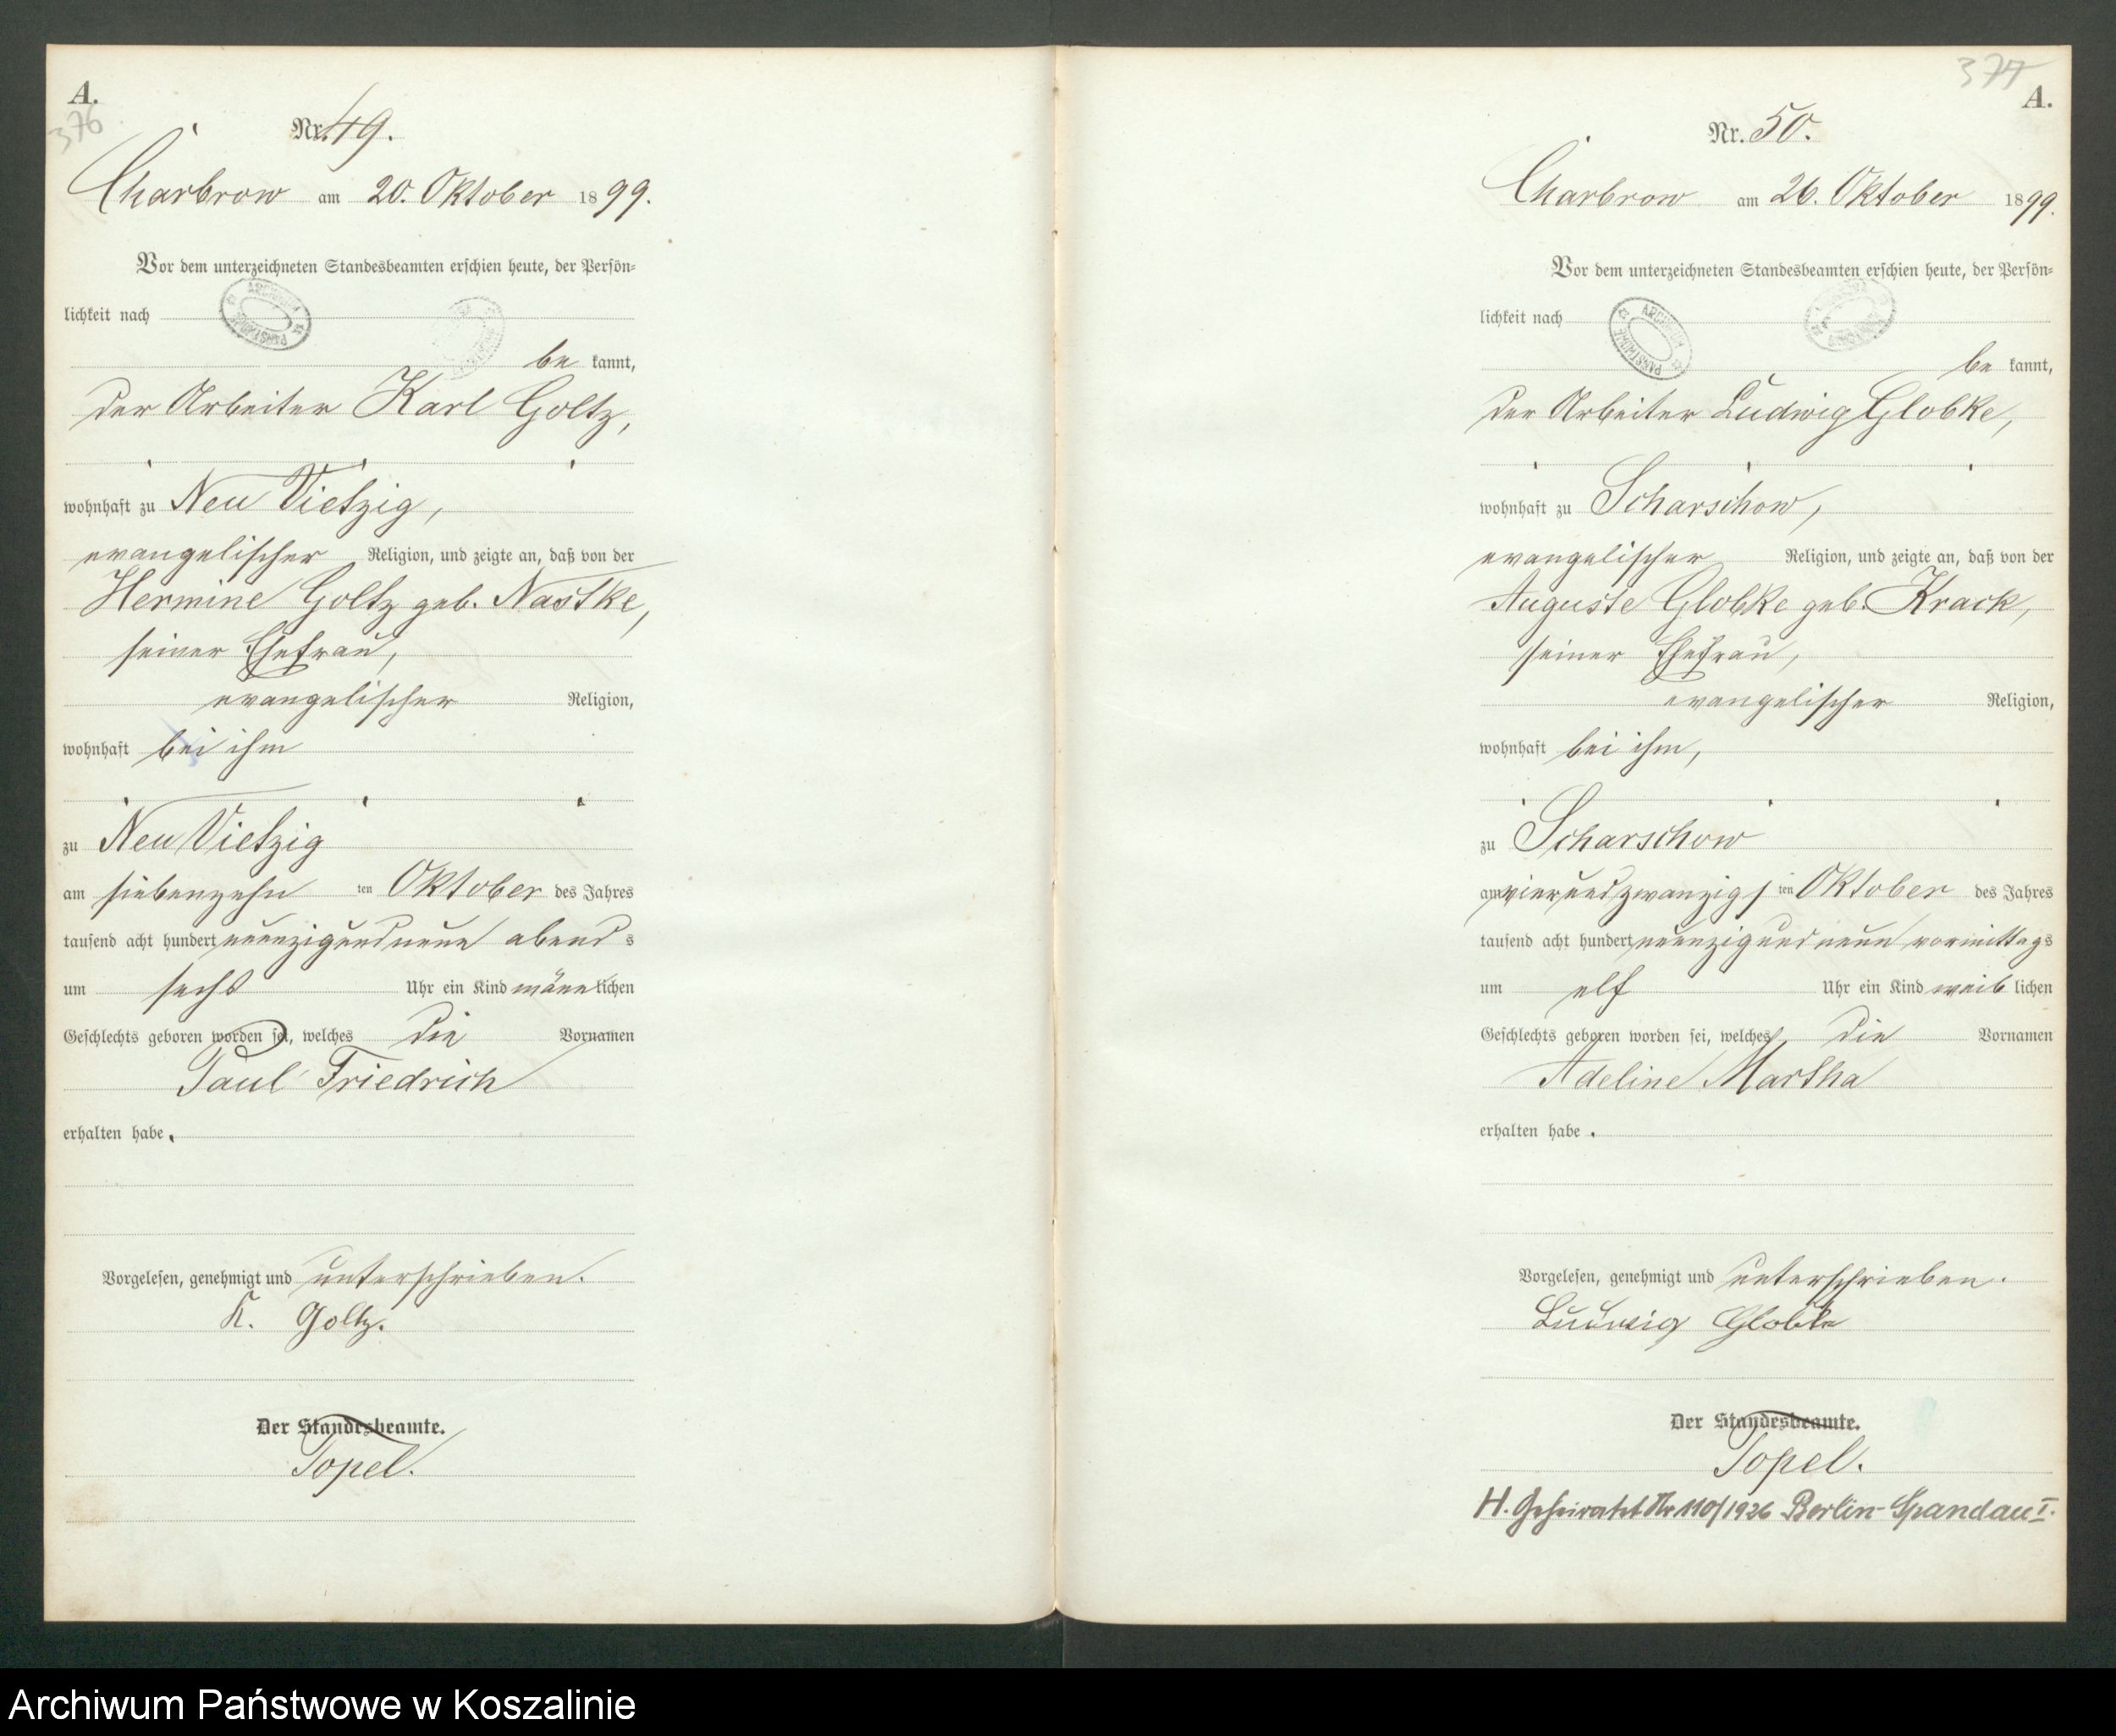 A.
376
Nr. 49.
Charbrow am 20. Oktober 1899.
Vor dem unterzeichneten Standesbeamten erschien heute, der Persön-
lichkeit nach
be kannt,
der Arbeiter Karl Goltz,
wohnhaft zu Neu Vietzig,
evangelischer Religion, und zeigte an, daß von der
Hermine Goltz geb. Nastke,
seiner Ehefrau,
evangelischer Religion,
wohnhaft bei ihm
zu Neu Vietzig
am siebenzehn ten Oktober des Jahres
tausend acht hundert neunzigundneun abends
um sechs Uhr ein Kind männlichen
Geschlechts geboren worden sei, welches die Vornamen
Paul Friedrich
erhalten habe.
Vorgelesen, genehmigt und unterschrieben.
K. Goltz.
Der Standesbeamte.
Topel.
377
A.
Nr. 50.
Charbrow am 26. Oktober 1899.
Vor dem unterzeichneten Standesbeamten erschien heute, der Persön-
lichkeit nach
be kannt,
der Arbeiter Ludwig Globke,
wohnhaft zu Scharschow,
evangelischer Religion, und zeigte an, daß von der
Auguste Globke geb. Krack,
seiner Ehefrau,
evangelischer Religion,
wohnhaft bei ihm,
zu Scharschow
am vierundzwanzigs ten Oktober des Jahres
tausend acht hundert neunzigundneun vormittags
um elf Uhr ein Kind weiblichen
Geschlechts geboren worden sei, welches die Vornamen
Adeline Martha
erhalten habe.
Vorgelesen, genehmigt und unterschrieben.
Ludwig Globke
Der Standesbeamte.
Topel.
H. Geheiratet Nr 110/1926 Berlin-Spandau I.
Archiwum Państwowe w Koszalinie